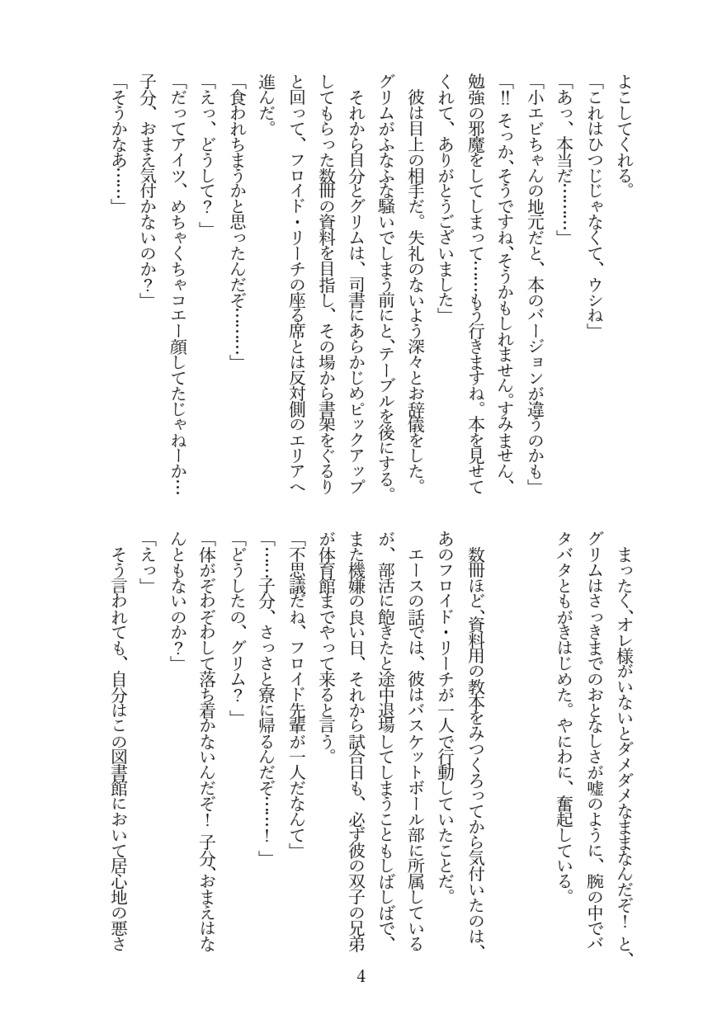 よこしてくれる。
「これはひつじじゃなくて、ウシね」
「あっ、本当だ………」
「小エビちゃんの地元だと、本のバージョンが違うのかも」
「!! そっか、そうですね、そうかもしれません。すみません、
勉強の邪魔をしてしまって……もう行きますね。本を見せて
くれて、ありがとうございました」
　彼は目上の相手だ。失礼のないよう深々とお辞儀をした。
グリムがふなふな騒いでしまう前にと、テーブルを後にする。
　それから自分とグリムは、司書にあらかじめピックアップ
してもらった数冊の資料を目指し、その場から書架をぐるり
と回って、フロイド・リーチの座る席とは反対側のエリアへ
進んだ。
「食われちまうかと思ったんだぞ………」
「えっ、どうして？」
「だってアイツ、めちゃくちゃコエー顔してたじゃねーか…
子分、おまえ気付かないのか？」
「そうかなあ……」
　まったく、オレ様がいないとダメダメなままなんだぞ！ と、
グリムはさっきまでのおとなしさが嘘のように、腕の中でバ
タバタともがきはじめた。やにわに、奮起している。
　数冊ほど、資料用の教本をみつくろってから気付いたのは、
あのフロイド・リーチが一人で行動していたことだ。
　エースの話では、彼はバスケットボール部に所属している
が、部活に飽きたと途中退場してしまうこともしばしばで、
また機嫌の良い日、それから試合日も、必ず彼の双子の兄弟
が体育館までやって来ると言う。
「不思議だね、フロイド先輩が一人だなんて」
「……子分、さっさと寮に帰るんだぞ……！」
「どうしたの、グリム？」
「体がぞわぞわして落ち着かないんだぞ！ 子分、おまえはな
んともないのか？」
「えっ」
　そう言われても、自分はこの図書館において居心地の悪さ
4